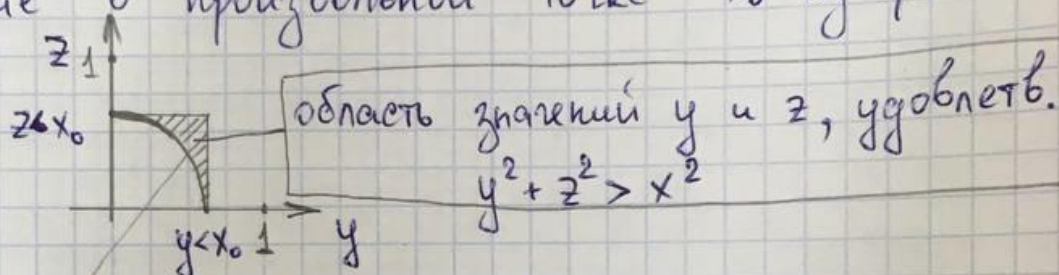 произвольной точке
z 1
z<x₀
область значений y и z, удовлетв.
y² + z² > x²
y<x₀ 1 y